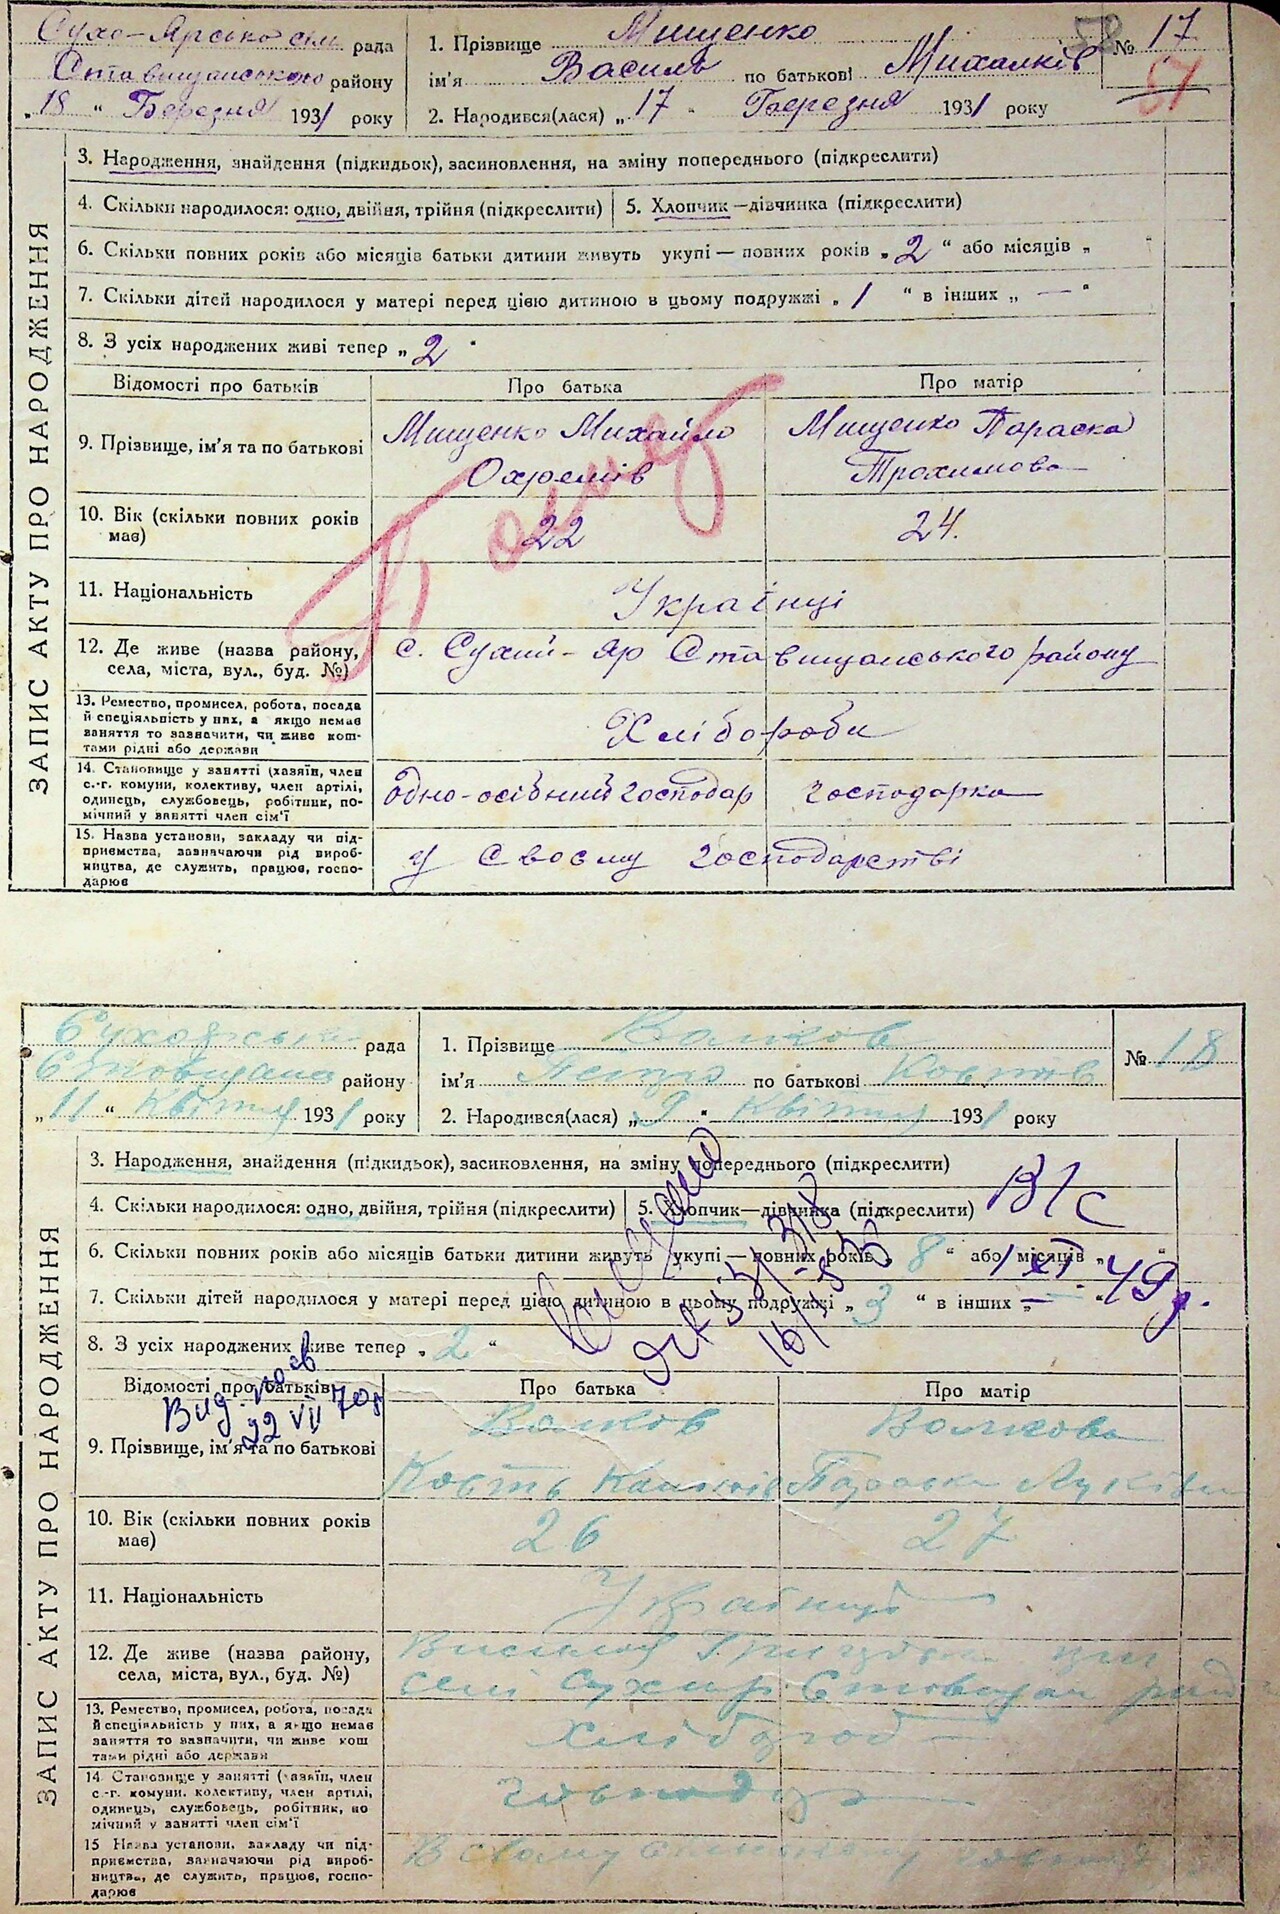 Сухо-Ярською сіль рада
Ставищанського району
„18 " Березня 1931 року
1. Прізвище Мищенко
ім'я Василь по батькові Михалків
2. Народився(лася) „17 " Березня 1931 року
№ 17
51
ЗАПИС АКТУ ПРО НАРОДЖЕННЯ
3. Народження, знайдення (підкидьок), засиновлення, на зміну попереднього (підкреслити)
4. Скільки народилося: одно, двійня, трійня (підкреслити) 5. Хлопчик—дівчинка (підкреслити)
6. Скільки повних років або місяців батьки дитини живуть укупі — повних років „2 " або місяців „
7. Скільки дітей народилося у матері перед цією дитиною в цьому подружжі „ 1 " в інших „ — "
8. З усіх народжених живі тепер „2 "
Відомості про батьків Про батька Про матір
9. Прізвище, ім'я та по батькові
Мищенко Михайло
Охремів
Мищенко Параска
Трохимова
10. Вік (скільки повних років
має)
22
24.
11. Національність
Українці
12. Де живе (назва району,
села, міста, вул., буд. №)
с. Сухий-Яр Ставищанського району
13. Ремество, промисел, робота, посада
й спеціяльність у них, а якщо немає
заняття то зазначити, чи живе кош-
тами рідні або держави
Хлібороби
14. Становище у занятті (хазяїн, член
с.-г. комуни, колективу, член артілі,
одинець, службовець, робітник, по-
мічний у занятті член сім'ї
Одно-осібний господар господарка
15. Назва установи, закладу чи під-
приємства, зазначаючи рід вироб-
ництва, де служить, працює, госпо-
дарює
У своєму господарстві
рада
району
„11 " Квітня 1931 року
1. Прізвище Волков
ім'я Петро по батькові Костів
2. Народився(лася) „9 " Квітня 1931 року
№ 18
ЗАПИС АКТУ ПРО НАРОДЖЕННЯ
3. Народження, знайдення (підкидьок), засиновлення, на зміну попереднього (підкреслити)
4. Скільки народилося: одно, двійня, трійня (підкреслити) 5. Хлопчик—дівчинка (підкреслити)
В/с
6. Скільки повних років або місяців батьки дитини живуть укупі — повних років „ 8 " або місяців „ "
1 XI 49 р.
7. Скільки дітей народилося у матері перед цією дитиною в цьому подружжі „ 3 " в інших „ — "
8. З усіх народжених живе тепер „ 2 "
Вид.
22 VII 70р
Відомості про батьків Про батька Про матір
9. Прізвище, ім'я та по батькові
Волков
Кость
Волкова
Параска
10. Вік (скільки повних років
має)
26
27
11. Національність
Українці
12. Де живе (назва району,
села, міста, вул., буд. №)
13. Ремество, промисел, робота, посада
й спеціяльність у них, а якщо немає
заняття то зазначити, чи живе кош
тами рідні або держави
Хлібороб
14. Становище у занятті (хазяїн, член
с.-г. комуни, колективу, член артілі,
одинець, службовець, робітник, по
мічний у занятті член сім'ї
15 Назва установи, закладу чи під-
приємства, зазначаючи рід вироб-
ництва, де служить, працює, госпо-
дарює